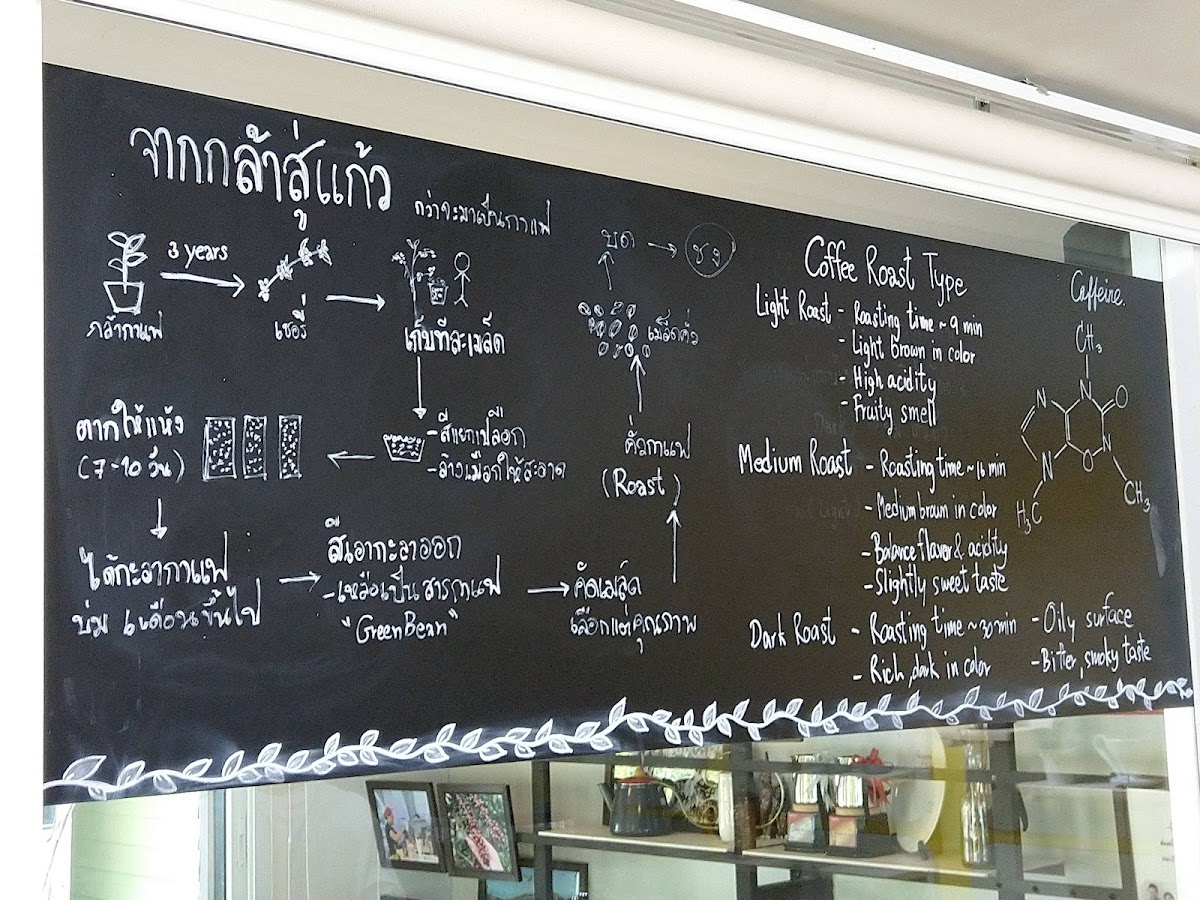 จากกล้าสู่แก้ว
กว่าจะมาเป็นกาแฟ
3 years
กล้ากาแฟ
เชอรี่
เก็บทีละเมล็ด
- สีแยกเปลือก
- ล้างเมือกให้สะอาด
ตากให้แห้ง
(7-10 วัน)
ได้กะลากาแฟ
บ่ม 6 เดือนขึ้นไป
สีเอากะลาออก
- เหลือเป็นสารกาแฟ
"Green Bean"
คัดเมล็ด
เลือกแต่คุณภาพ
คั่วกาแฟ
(Roast)
เมล็ดคั่ว
บด
ชง
Coffee Roast Type
Light Roast - Roasting time ~ 9 min
- Light brown in color
- High acidity
- Fruity smell
Medium Roast - Roasting time ~ 16 min
- Medium brown in color
- Balance flavor & acidity
- Slightly sweet taste
Dark Roast - Roasting time ~ 20 min
- Rich, dark in color
- Oily surface
- Bitter, smoky taste
Caffeine.
CH3
N
N
O
N
N
O
CH3
H3C